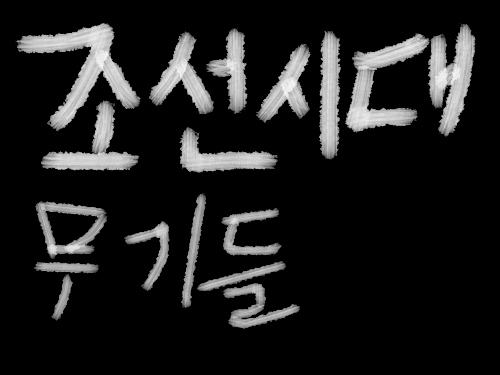 조선시대
무기들